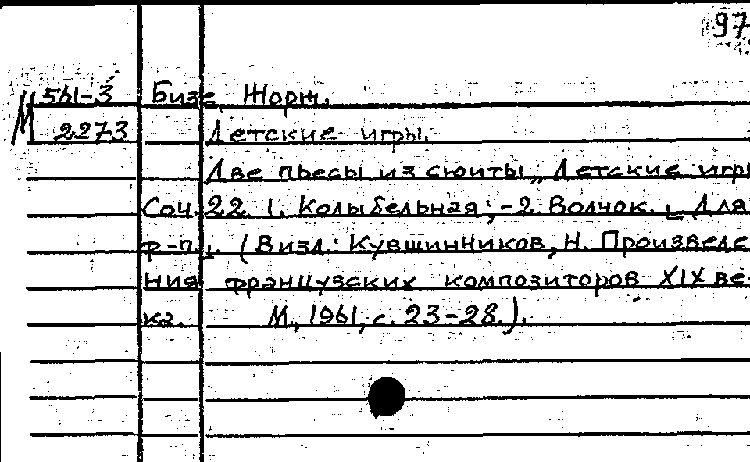 97
561-3 Бизе, Жорж.
М 2273 Детские игры.
Две пьесы из сюиты „Детские игры
Соч. 22 1. Колыбельная; -2. Волчок. [Для
ф-п.]. (В изд.: Кувшинников, Н. Произведе-
ния французских композиторов XIX ве-
ка. М., 1961, с. 23-28.).